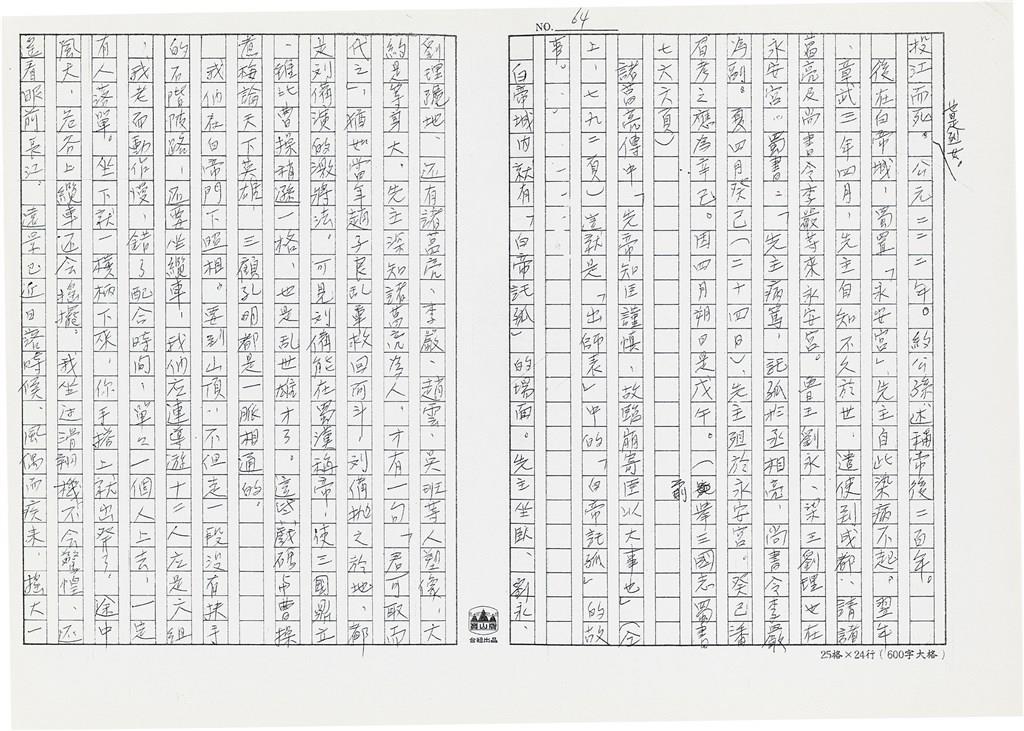 NO. 64
投江而死。公元二二二年。約公孫述稱帝後二百年。
後在白帝城,蜀置「永安宮」,先主自此染病不起。翌年
、章武三年四月,先主自知不久於世,遣使到成都:請諸
葛亮及尚書令李嚴等來永安宮。魯王劉永、梁王劉理也在
永安宮:蜀書二「先主病篤,託孤於丞相亮,尚書令李嚴
為副。夏四月癸巳(二十四日),先主殂於永安宮。癸巳潘
眉考之應為辛巳。因四月朔日是戊午。(前舉三國志蜀書
七六六頁)
諸葛亮傳中「先帝知臣謹慎,故臨崩寄臣以大事也」(仝
上,七九二頁)這就是「出師表」中的「白帝託孤」的故
事。
白帝城內就有「白帝託孤」的場面。先主坐臥、劉永、
25格×24行(600字大格)
劉理跪地、还有諸葛亮、李嚴、趙雲、吳班等人塑像,大
約是等身大。先主深知諸葛亮為人,才有一句「君可取而
代之」,猶如當年趙子良乱軍救回阿斗,刘備抛之於地,都
是刘備演的激將法。可見刘備能在蜀漢稱帝,使三國鼎立
,雖比曹操稍遜一格,也是乱世雄才了。這些戲碼与曹操
煮梅論天下英雄,三顧孔明都是一脈相通的。
我们在白帝門下照相。要到山頂:不但走一段没有扶手
的石階陡路,还要坐纜車,我们在連導游十二人左是六組
,我老而動作慢,錯了配合時间,單單一個人上去,一定
有人落單。坐下就一横柄下來,你手搭上就出發了。途中
風大,危谷上纜車还会搖擺。我坐过滑翔機不会驚惶,还
遥看眼前長江。遠景已近日落時候、風偶而疾来,搖大一
高山牌
台經出品